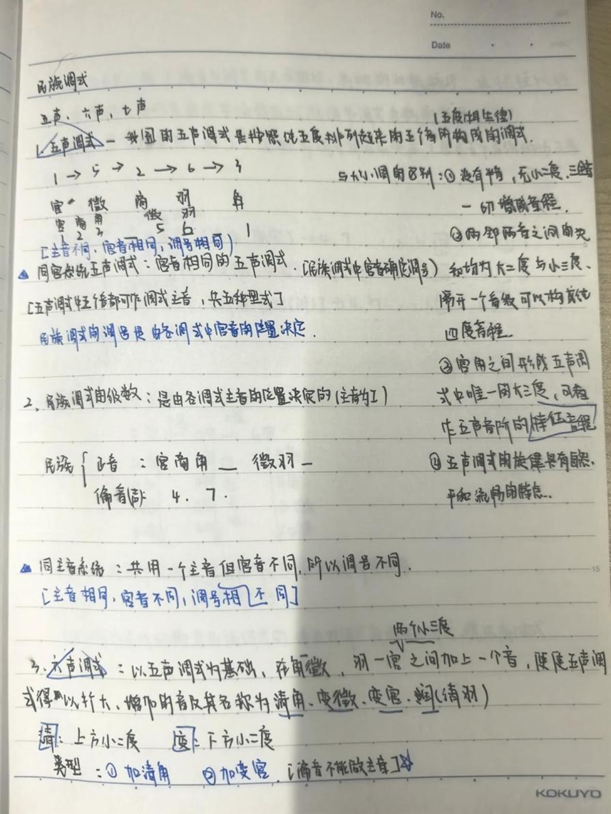 No.
Date
民族调式
五声、六声、七声
(五度相生律)
1. 五声调式 — 我国的五声调式是按照纯五度排列起来的五个音所构成的调式.
1 → 5 → 2 → 6 → 3
与大小调的区别: ① 没有半音, 无小二度、三全音
宫 徵 商 羽 角
一切增减音程.
宫 商 角 徵 羽
1 2 3 5 6 1
② 两邻两音之间
[主音不同, 宫音相同, 调号相同]
同宫系统五声调式: 宫音相同的五声调式. (民族调式中宫音确定调号)
均为大二度与小三度.
[五声调式每个音都可作调式主音, 共五种型式]
隔开一个音级可以构成纯
民族调式的调号是由各调式中宫音的位置决定.
四度音程.
③ 宫角之间形成五声调
2. 民族调式的级数: 是由各调式主音的位置决定的 (主音为I)
式中唯一的大三度, 可看
作五声音阶的特征音程
民族 { 正音: 宫商角 __ 徵羽 —
④ 五声调式的旋律具有自然、
偏音: 4. 7.
平和流畅的特点.
同主音系统: 共用一个主音但宫音不同, 所以调号不同.
[主音相同, 宫音不同, 调号不同]
两个小三度
3. 六声调式: 以五声调式为基础, 在角徵, 羽—宫之间加上一个音, 使五声调
式得以扩大, 增加的音及其名称为清角、变徵、变宫、闰(清羽)
清: 上方小二度 变: 下方小二度
类型: ① 加清角 ② 加变宫. [偏音不能做主音]
KOKUYO